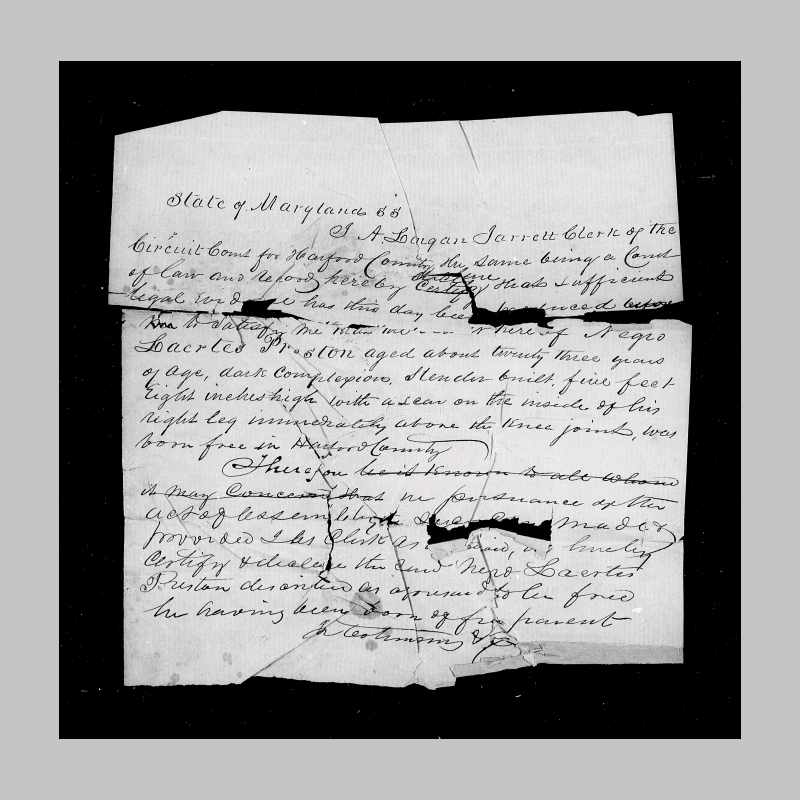 State of Maryland ss
I A Lingan Jarrett Clerk of the
Circuit Court for Harford County the same being a Court
of law and record, hereby Certify that sufficient
legal has this day been produced
to satisfy me Negro
Laertes Preston aged about twenty three years
of age, dark Complexion, Slender built, five feet
Eight inches high with a scar on the inside of his
right leg immediately above the Knee joint, was
born free in Harford County
Therefore be it Known to all whom
it may Concern that in pursuance of the
act of assembly made &
provided I as Clerk as hereby
Certify & declare the said Negro Laertes
Preston described as aforesaid to be free
he having been born of free parent
In testimony &c